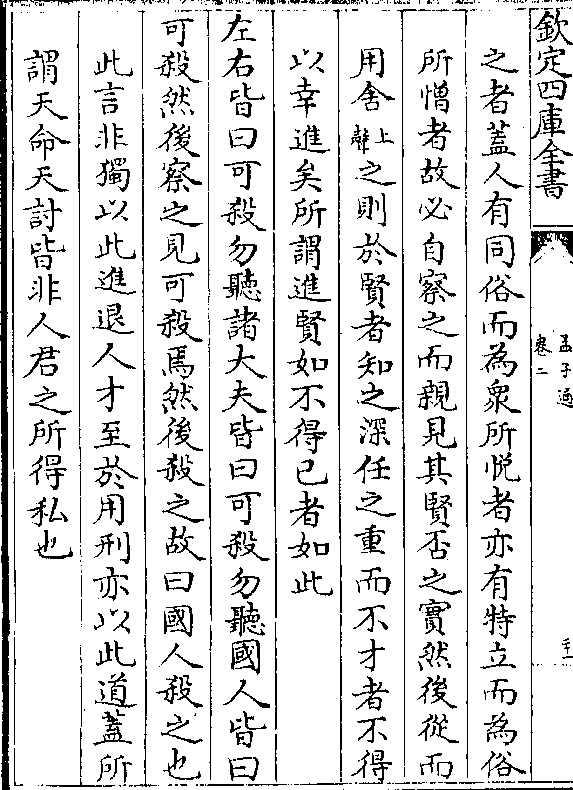 欽定四庫全書
孟子通
卷二
之者蓋人有同俗而為衆所悦者亦有特立而為俗
所憎者故必自察之而親見其賢否之實然後從而
用舍上聲之則於賢者知之深任之重而不才者不得
以幸進矣所謂進賢如不得已者如此
左右皆曰可殺勿聽諸大夫皆曰可殺勿聽國人皆曰
可殺然後察之見可殺焉然後殺之故曰國人殺之也
此言非獨以此進退人才至於用刑亦以此道蓋所
謂天命天討皆非人君之所得私也